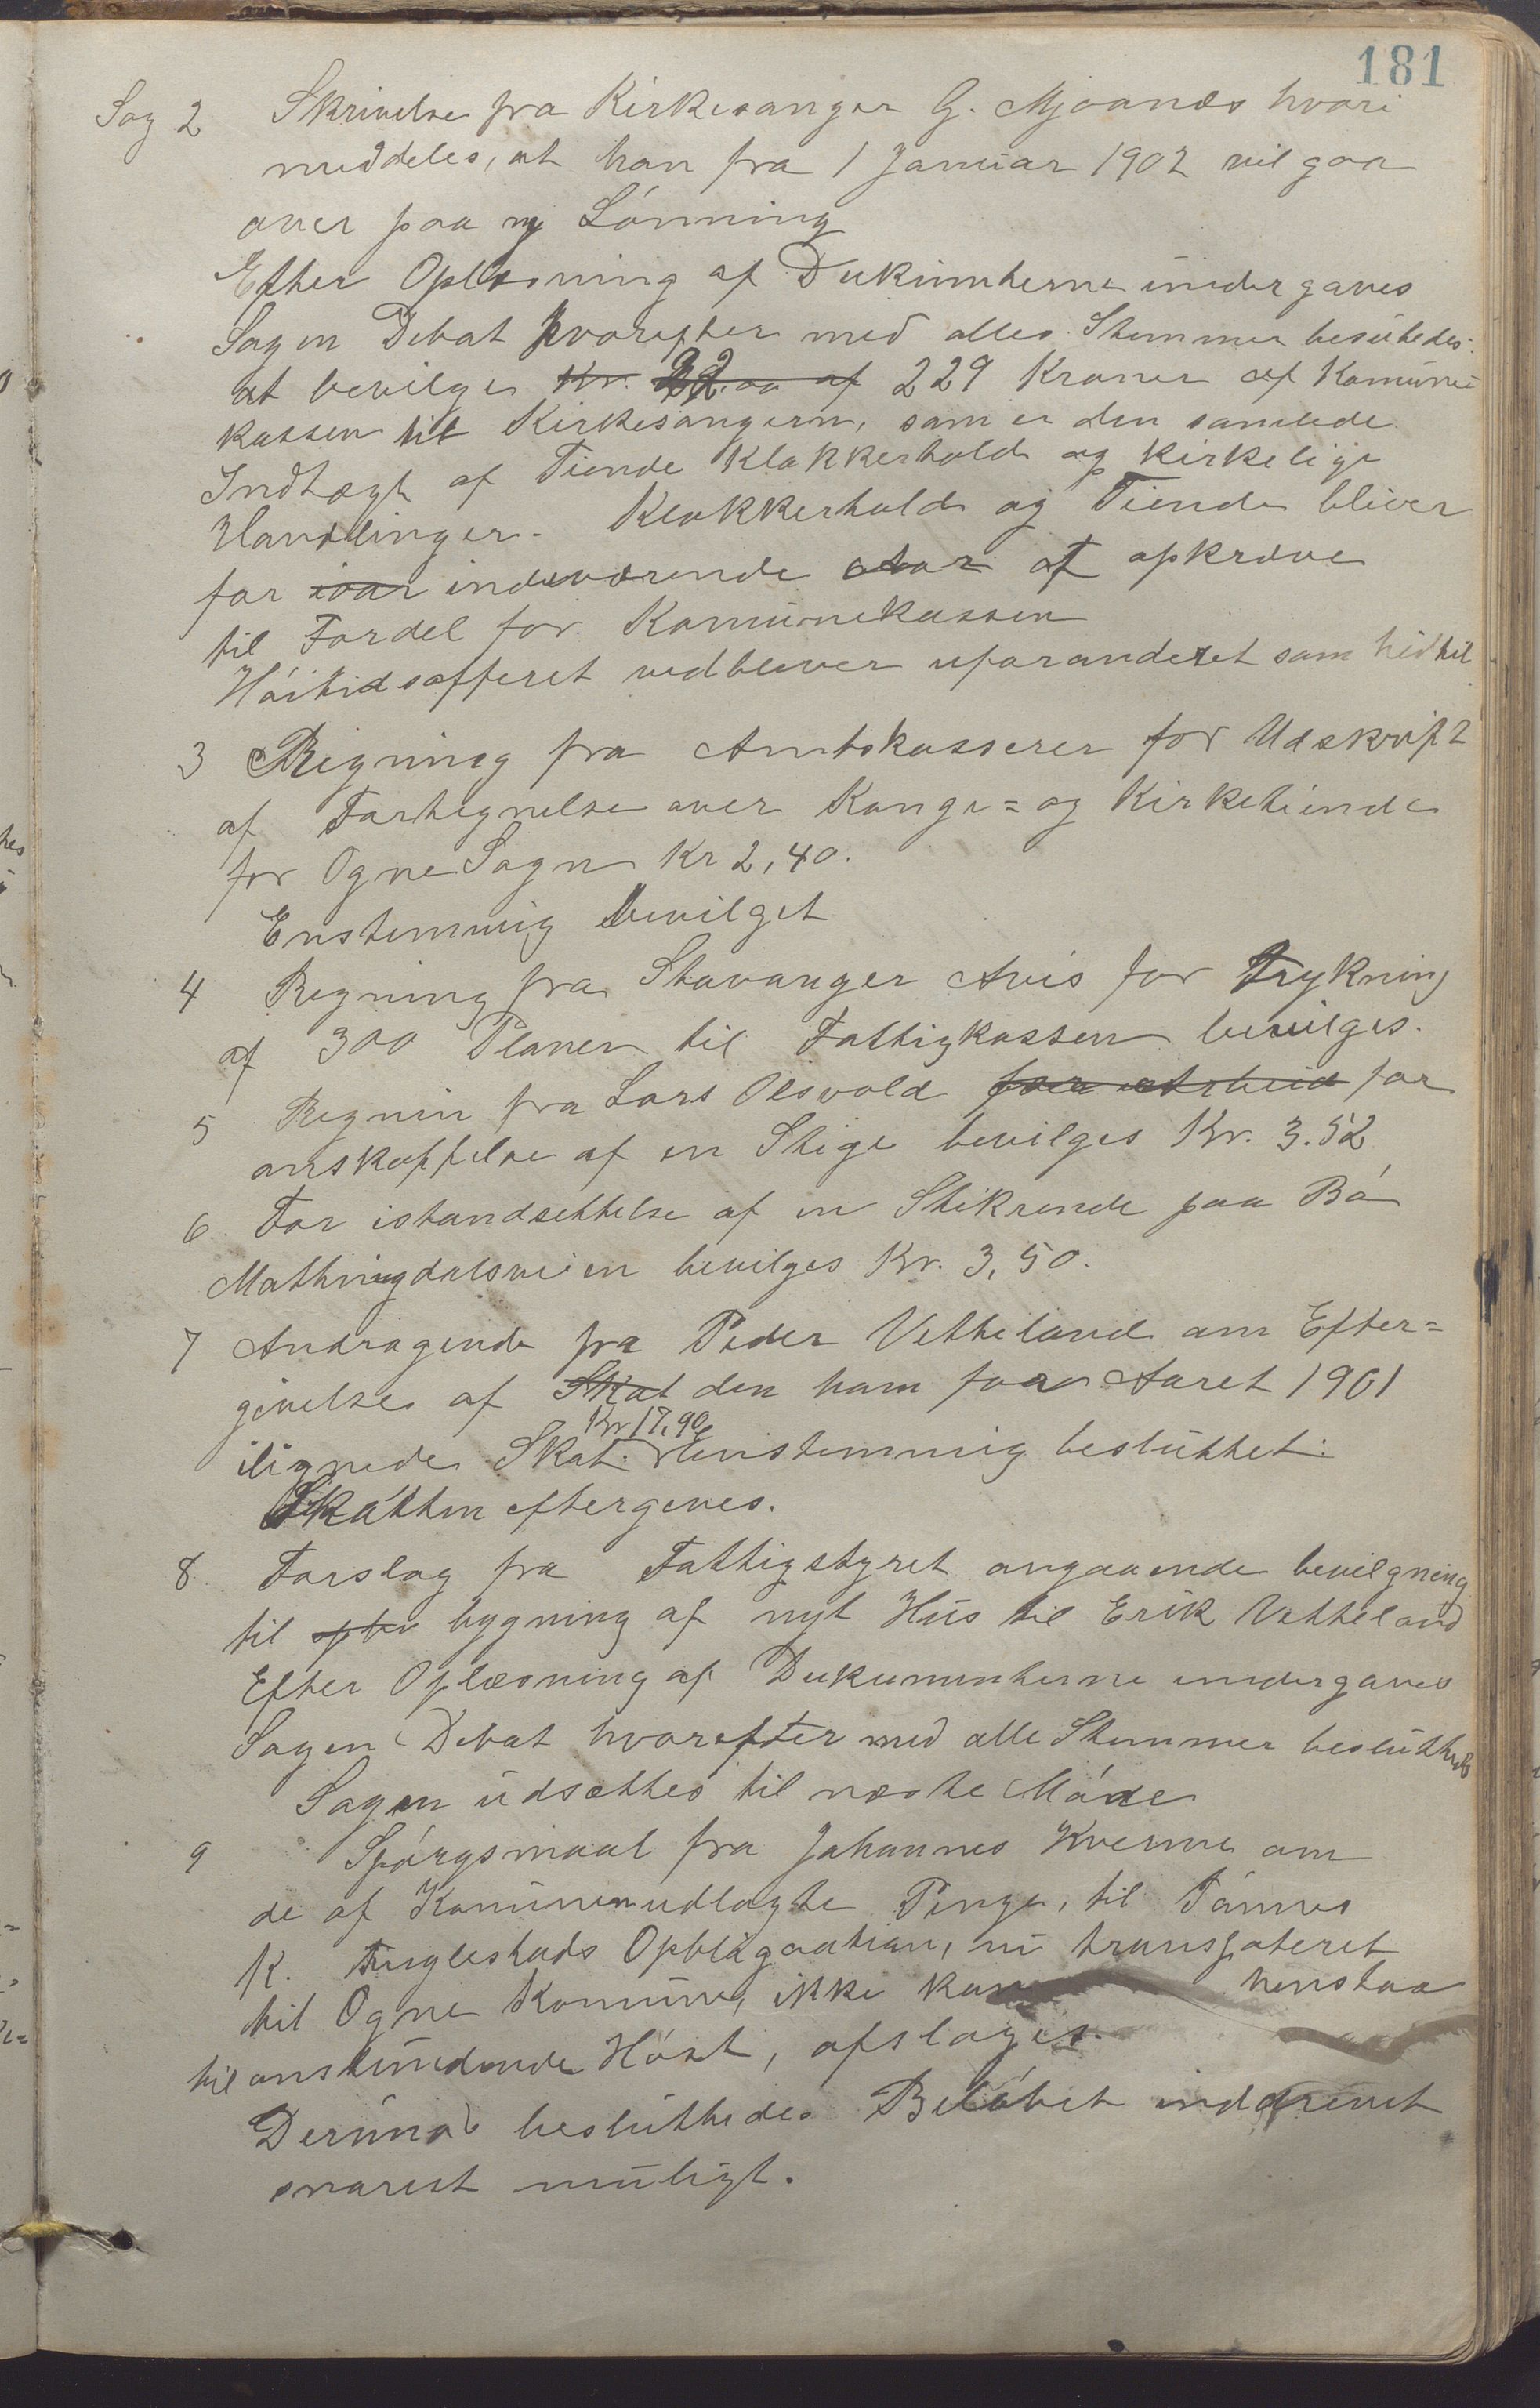 181
Sag 2 Skrivelse fra Kirkesanger G. Mjaanes hvori
meddeles, at han fra 1 Januar 1902 vil gaa
over paa ny Lónning
Efter Oplæsning af Dukimterne undergaves
Sagen Debat hvorefter med alles Stemmer besluttedes:
at bevilges Kr. 22.00 af 229 Kroner af Komune
kassen til Kirkesangern, som er den samlede
Indtægt af Tiende Klokkerhold og kirkelige
Handlinger. Klokkerhold og Tiende bliver
for iaar indeværende at opkræve
til Fordel for Komunekassen
Hóitidsofferet vedbliver uforanderet som hidtil
3 Regning fra Amtskasserer for Udskrift
af Fortegnelse over Konge= og Kirketiende
for Ogne Sogn Kr 2,40.
Enstemmig bevilget
4 Regning fra Stavanger Avis for Trykning
af 300 Planer til Fattigkassen bevilges.
5 Regnin fra Lars Olsvold for arbeid for
anskaffelse af en Stige bevilges Kr. 3.52
6. For istandsettelse af en Stikrende paa Bó
Mathingdalsveien bevilges Kr. 3,50.
7 Andragende fra Peder Vetteland om Efter=
givelse af Skat den ham for Aaret 1901
Kr 17,90
ilignede Skat. Enstemmig besluttet:
Skatten eftergives.
8 Forslag fra Fattigstyret angaaende bevilgning
til bygning af nyt Hus til Erik Vetteland
Efter Oplæsning af Dukumenterne undergaves
Sagen Debat hvorefter med alle Stemmer besluttedes
Sagen udsættes til næste Móde
9 Spórgsmaal fra Johannes Kverme om
de af Komunen udlagte Penge, til Tónnes
K. Fuglestads Opbligaation, nu transpoteret
til Ogne Komune, ikke kan henstaa
til anstundende Hóst, afslages.
Derimod besluttedes Belóbet inddrevet
snarest muligt.